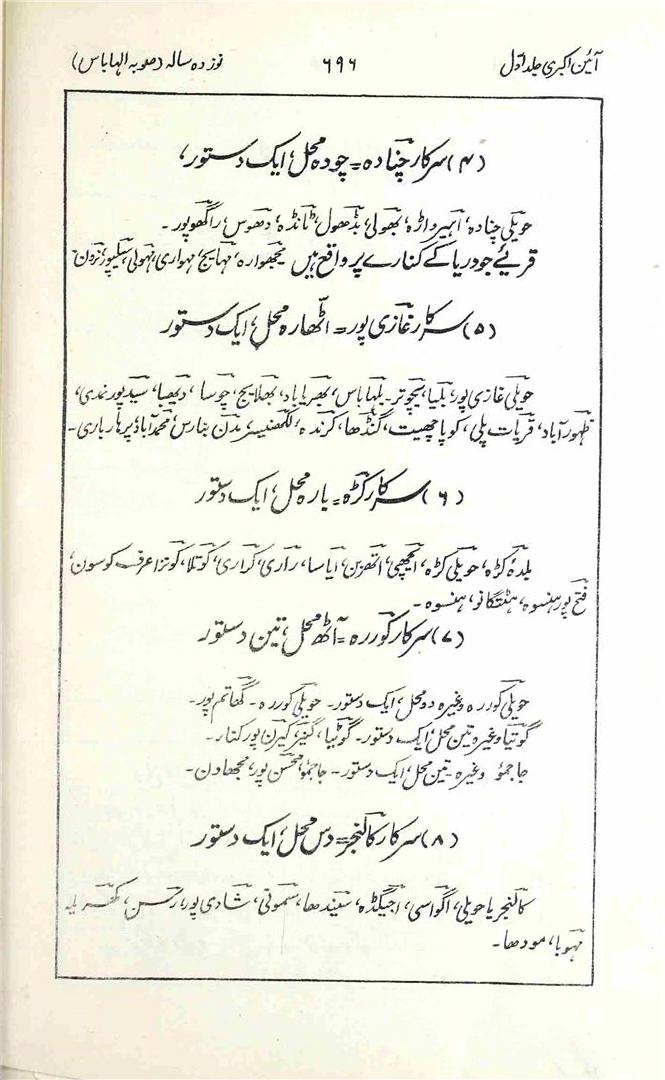 آئین اکبری جلد اول ۶۹۶ نوزدہ سالہ (صوبہ الہاباس)
(۴) سرکار چنادہ = چودہ محل، ایک دستور،
حویلی چنادہ، اہیرواڑہ، بھولی، بڈھول، ٹانڈہ، دھوس، راگھوپور۔
قریئے جو دریا کے کنارے پر واقع ہیں مجھوارہ، مہایج، مہواری، مہولی، سلیپور، نرون
(۵) سرکار غازی پور = اٹھارہ محل، ایک دستور
حویلی غازی پور، بلیا، پچوتر۔ بلہاباس، بھریاباد، بھلایج، چوسا، دیھبا، سیدپور نمدی،
ظہورآباد، قریات پلی، کوپاچھیت، گنڈھا، کرندہ، لکھنیسر، بدن بنارس، محمدآباد پرہارباری۔
(۶) سرکار کڑہ = بارہ محل، ایک دستور
بلدۂ کڑہ، حویلی کڑہ، انچھی، اتھربن، ایاسا، راری، کراری، کوتلا، کونرا عرف کوسون،
فتح پور ہنسوہ، ہتگانو، ہنسوہ۔
(۷) سرکار کوررہ = آٹھ محل، تین دستور
حویلی کوررہ وغیرہ دو محل، ایک دستور۔ حویلی کوررہ۔ گھاتم پور۔
گوتیا وغیرہ تین محل، ایک دستور۔ گوٹیا، گنیر، کیرن پور کنار۔
جاجمؤ وغیرہ۔ تین محل، ایک دستور۔ جاجمؤ، محسن پور، مجھادن۔
(۸) سرکار کالنجر = دس محل، ایک دستور
کالنجر باحویلی، اگواسی، اجیگڈہ، سیندھا، سمونی، شادی پور، رسن، کھریلہ
مہوبا، مودھا۔